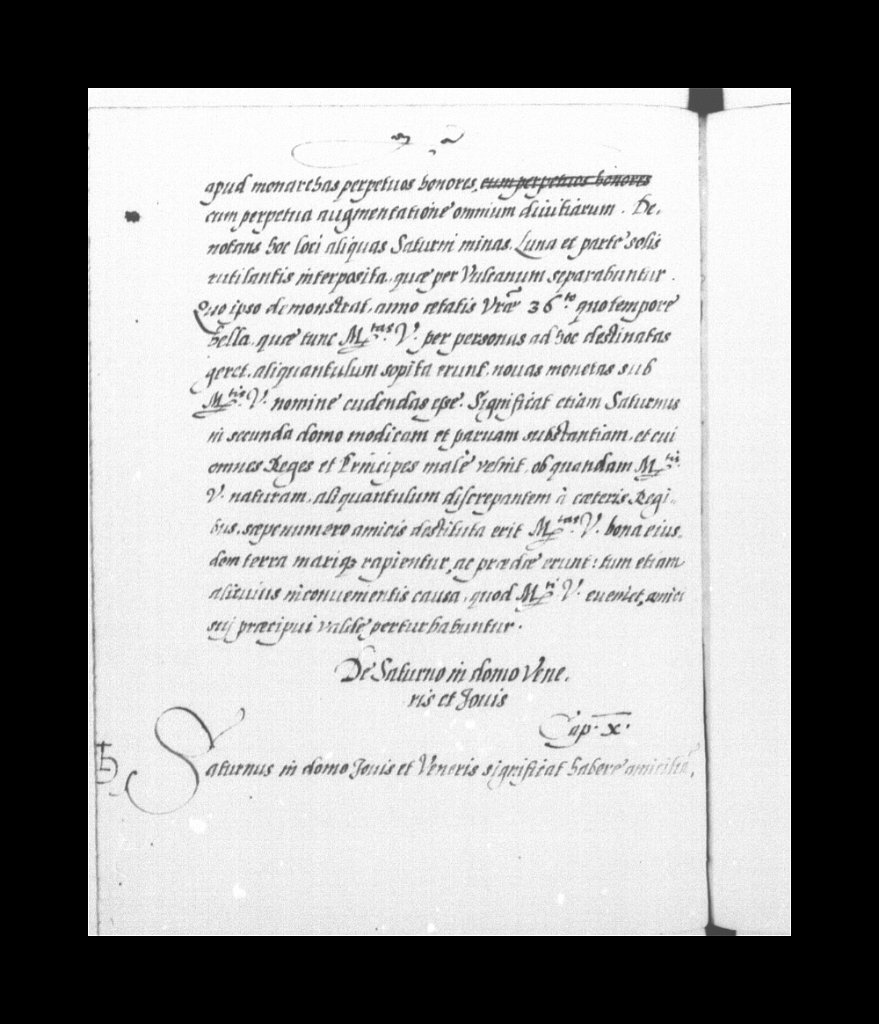 apud monarchas perpetuos honores, cum perpetuos honores
cum perpetua augmentatione omnium diuitiarum. De,
notans hoc loci aliquas Saturni minas, Luna et parte solis
rutilantis interposita, quæ per Vulcanum separabuntur.
Quo ipso demonstrat, anno ætatis Vræ 36to quo tempore
bella, quæ tunc M.tas V. per personas ad hoc destinatas
geret, aliquantulum sopita erunt, nouas monetas sub
M.tis V. nomine cudendas esse. Significat etiam Saturnus
in secunda domo modicam et paruam substantiam, et cui
omnes Reges et Principes malè velint, ob quandam M.tis
V. naturam, aliquantulum discrepantem à cæteris Regi-
bus, sæpenumero amicis destituta erit M.tas V. bona eius,
dem terra mariq3 rapientur, ac prædæ erunt: tum etiam
alicuius inconuenientis causa, quod M.ti V. eueniet, amici
sui præcipui valdè perturbabuntur.
De Saturno in domo Vene.
ris et Jouis
Cap. x.
♄ Saturnus in domo Jouis et Veneris significat habere amicitiã,